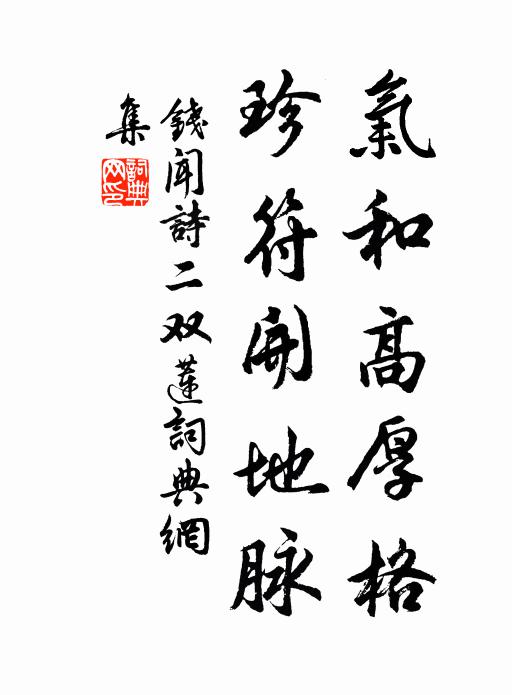 氣和高厚格
珍符開地脉
錢聞詩二双蓮詞典網
集
詞典
网印